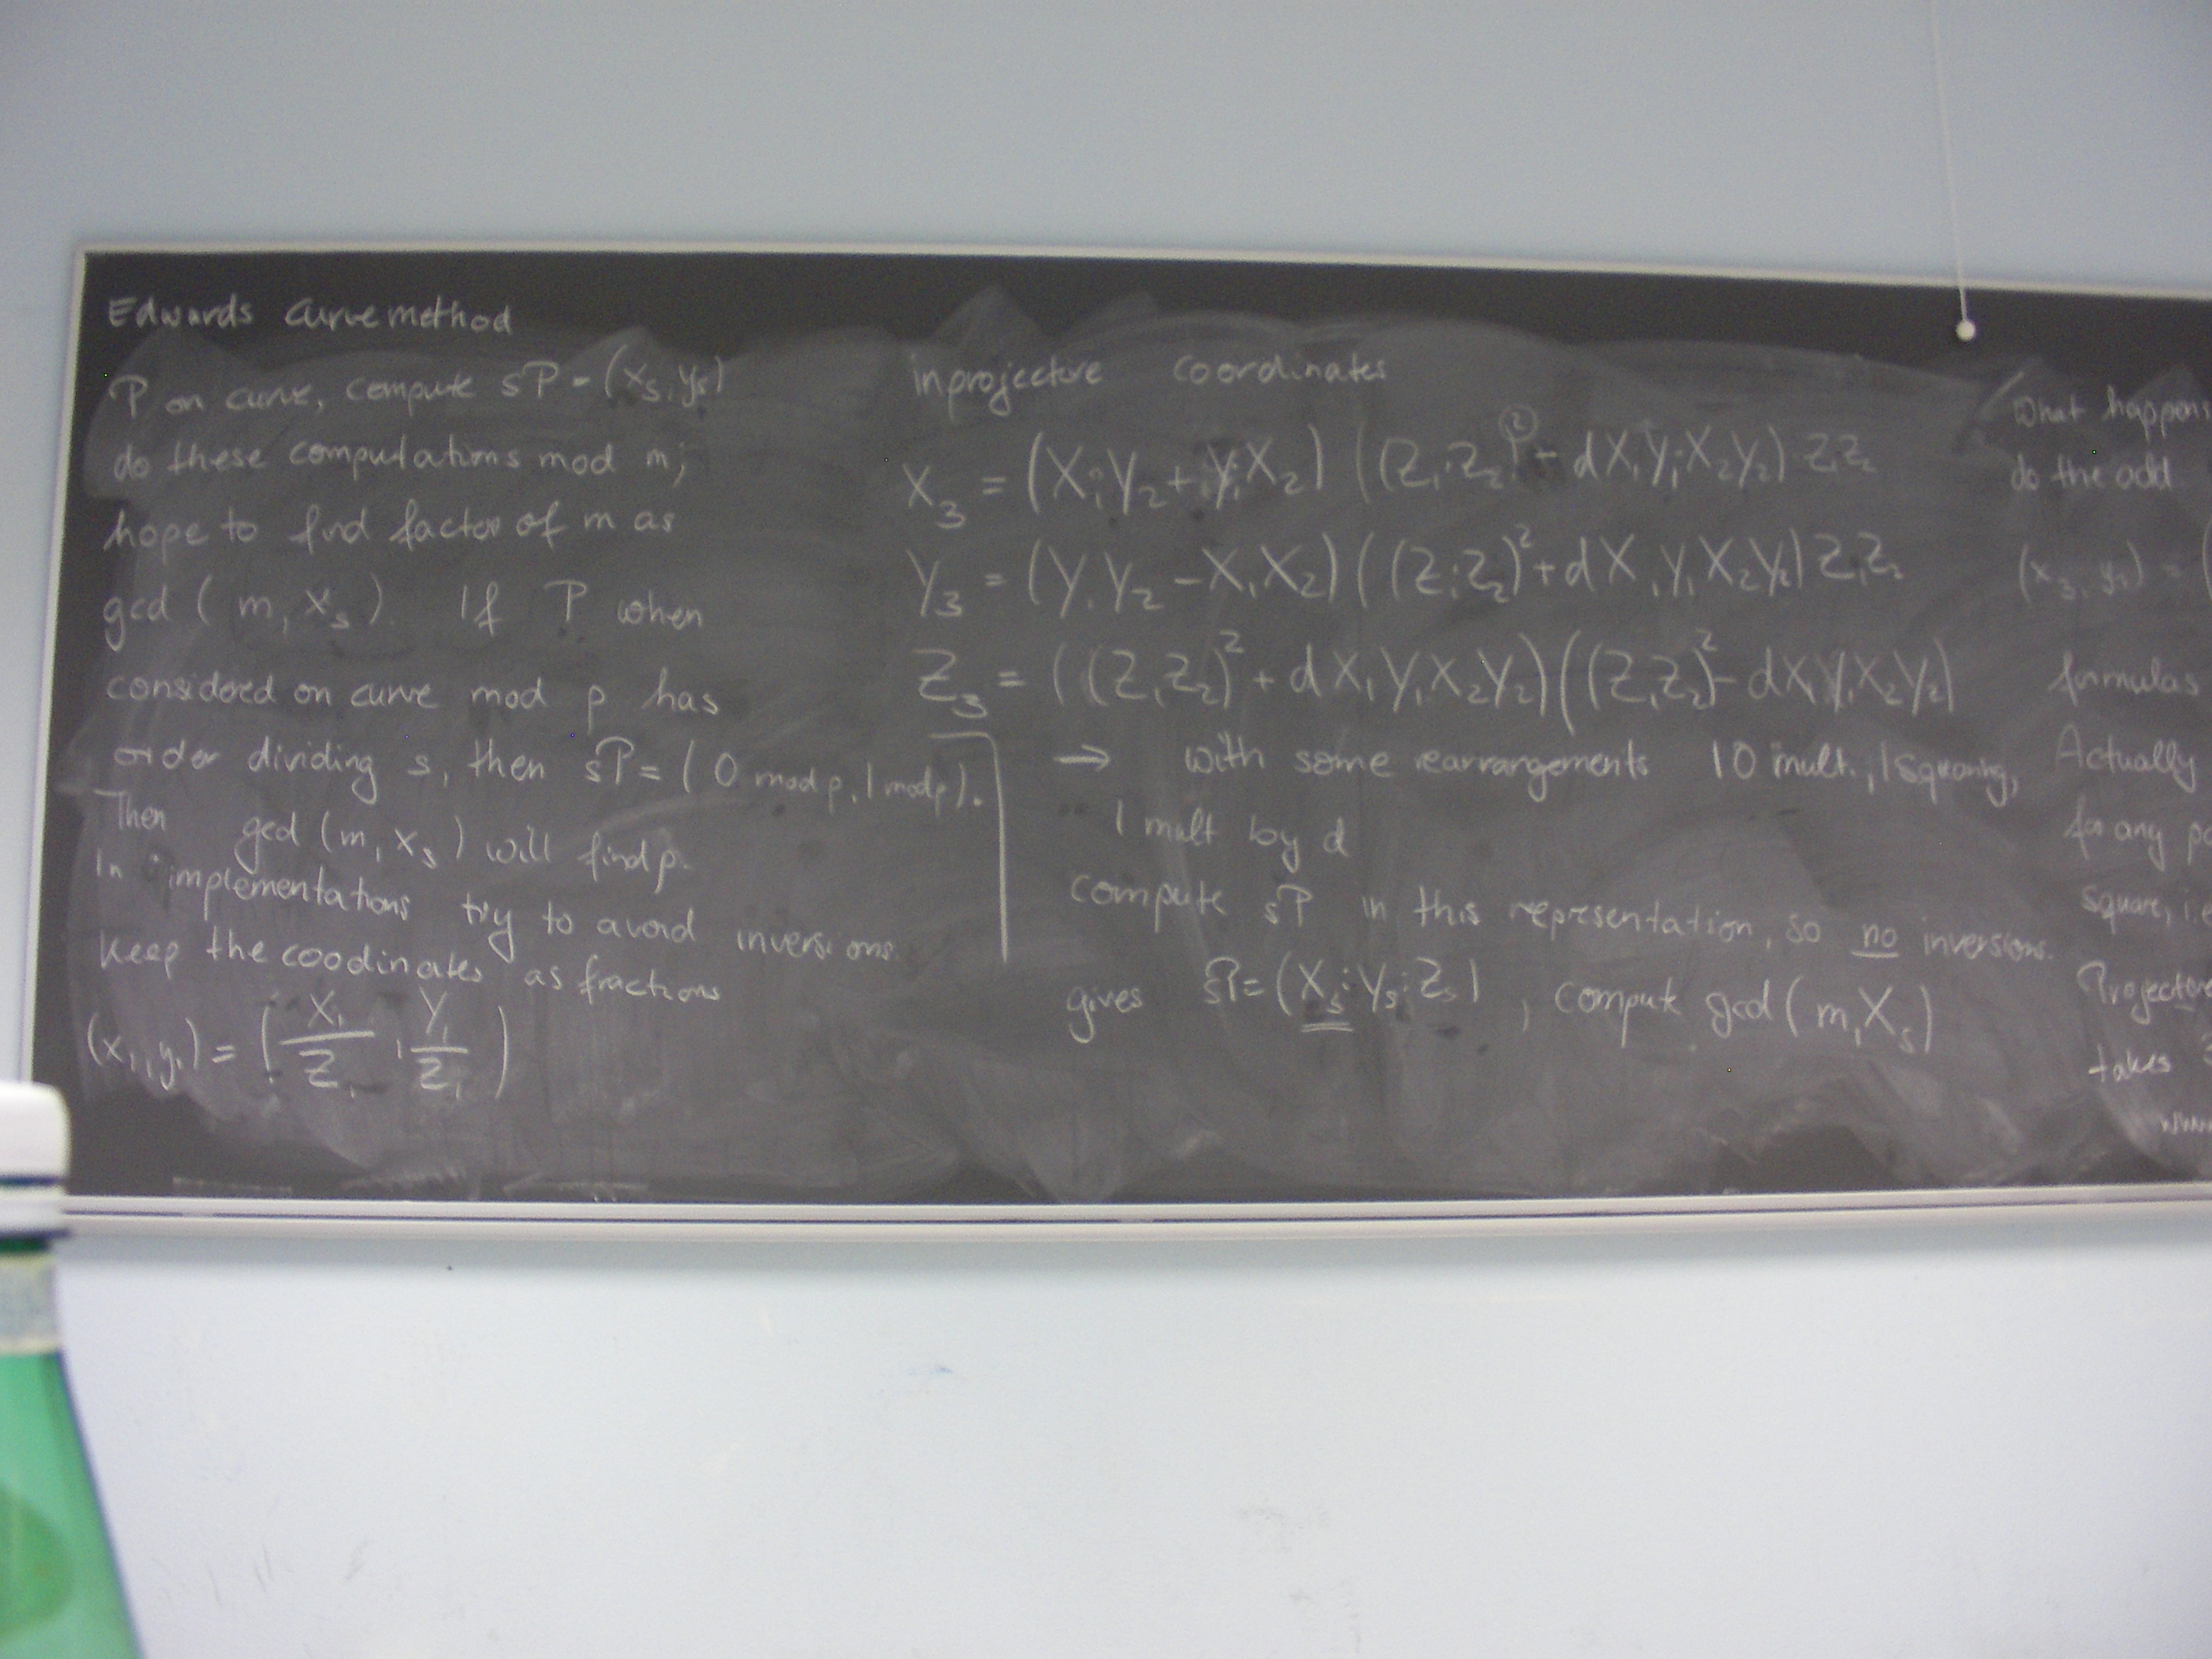 Edwards curve method
P on curve, compute sP = (xₛ, yₛ)
do these computations mod m;
hope to find factor of m as
gcd ( m, xₛ ). If P when
considered on curve mod p has
order dividing s, then sP = ( 0 mod p, 1 mod p ).
Then gcd (m, xₛ) will find p.
In implementations try to avoid inversions.
Keep the coodinates as fractions
(x₁, y₁) = ( X₁/Z₁ , Y₁/Z₁ )
in projective coordinates
X₃ = (X₁Y₂ + Y₁X₂) ((Z₁Z₂)² - dX₁Y₁X₂Y₂) Z₁Z₂
Y₃ = (Y₁Y₂ - X₁X₂) ((Z₁Z₂)² + dX₁Y₁X₂Y₂) Z₁Z₂
Z₃ = ((Z₁Z₂)² + dX₁Y₁X₂Y₂) ((Z₁Z₂)² - dX₁Y₁X₂Y₂)
→ with some rearrangements 10 mult., 1 squaring,
1 mult by d
compute sP in this representation, so no inversions.
gives sP = (Xₛ : Yₛ : Zₛ) , compute gcd (m, Xₛ)
What happen
do the add
(x₃, y₃) = (
formulas
Actually
for any
square,
takes